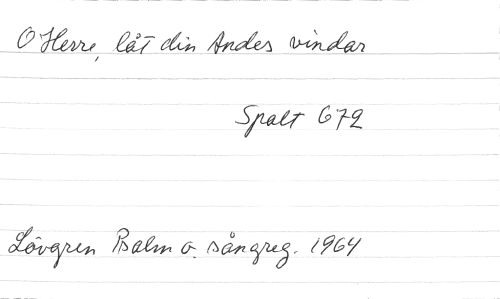 O Herre, låt din Andes vindar
Spalt 672
Lövgren Psalm o. sångreg. 1964